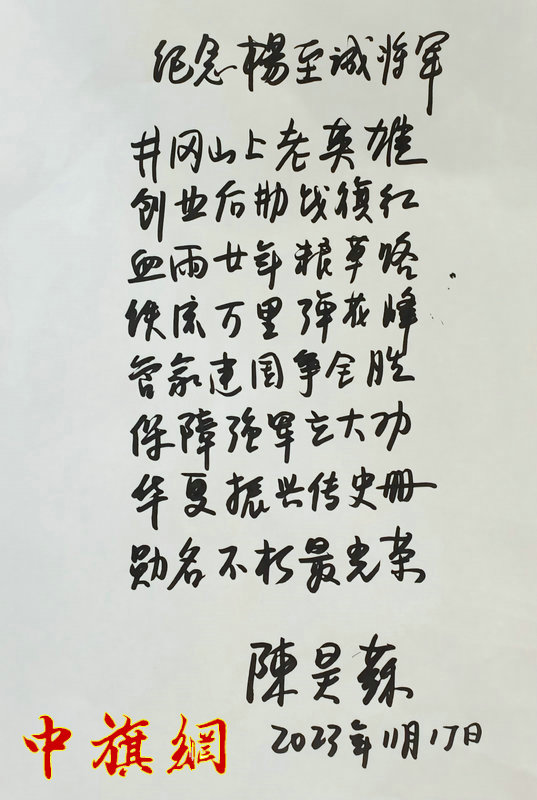 纪念楊至诚将军
井冈山上老英雄
创业后勤战旗红
血雨廿年粮草路
铁流万里弹花峰
管家建国争全胜
保障强军立大功
华夏振兴传史册
勋名不朽最光荣
陳昊蘇
2023年11月17日
中旗網